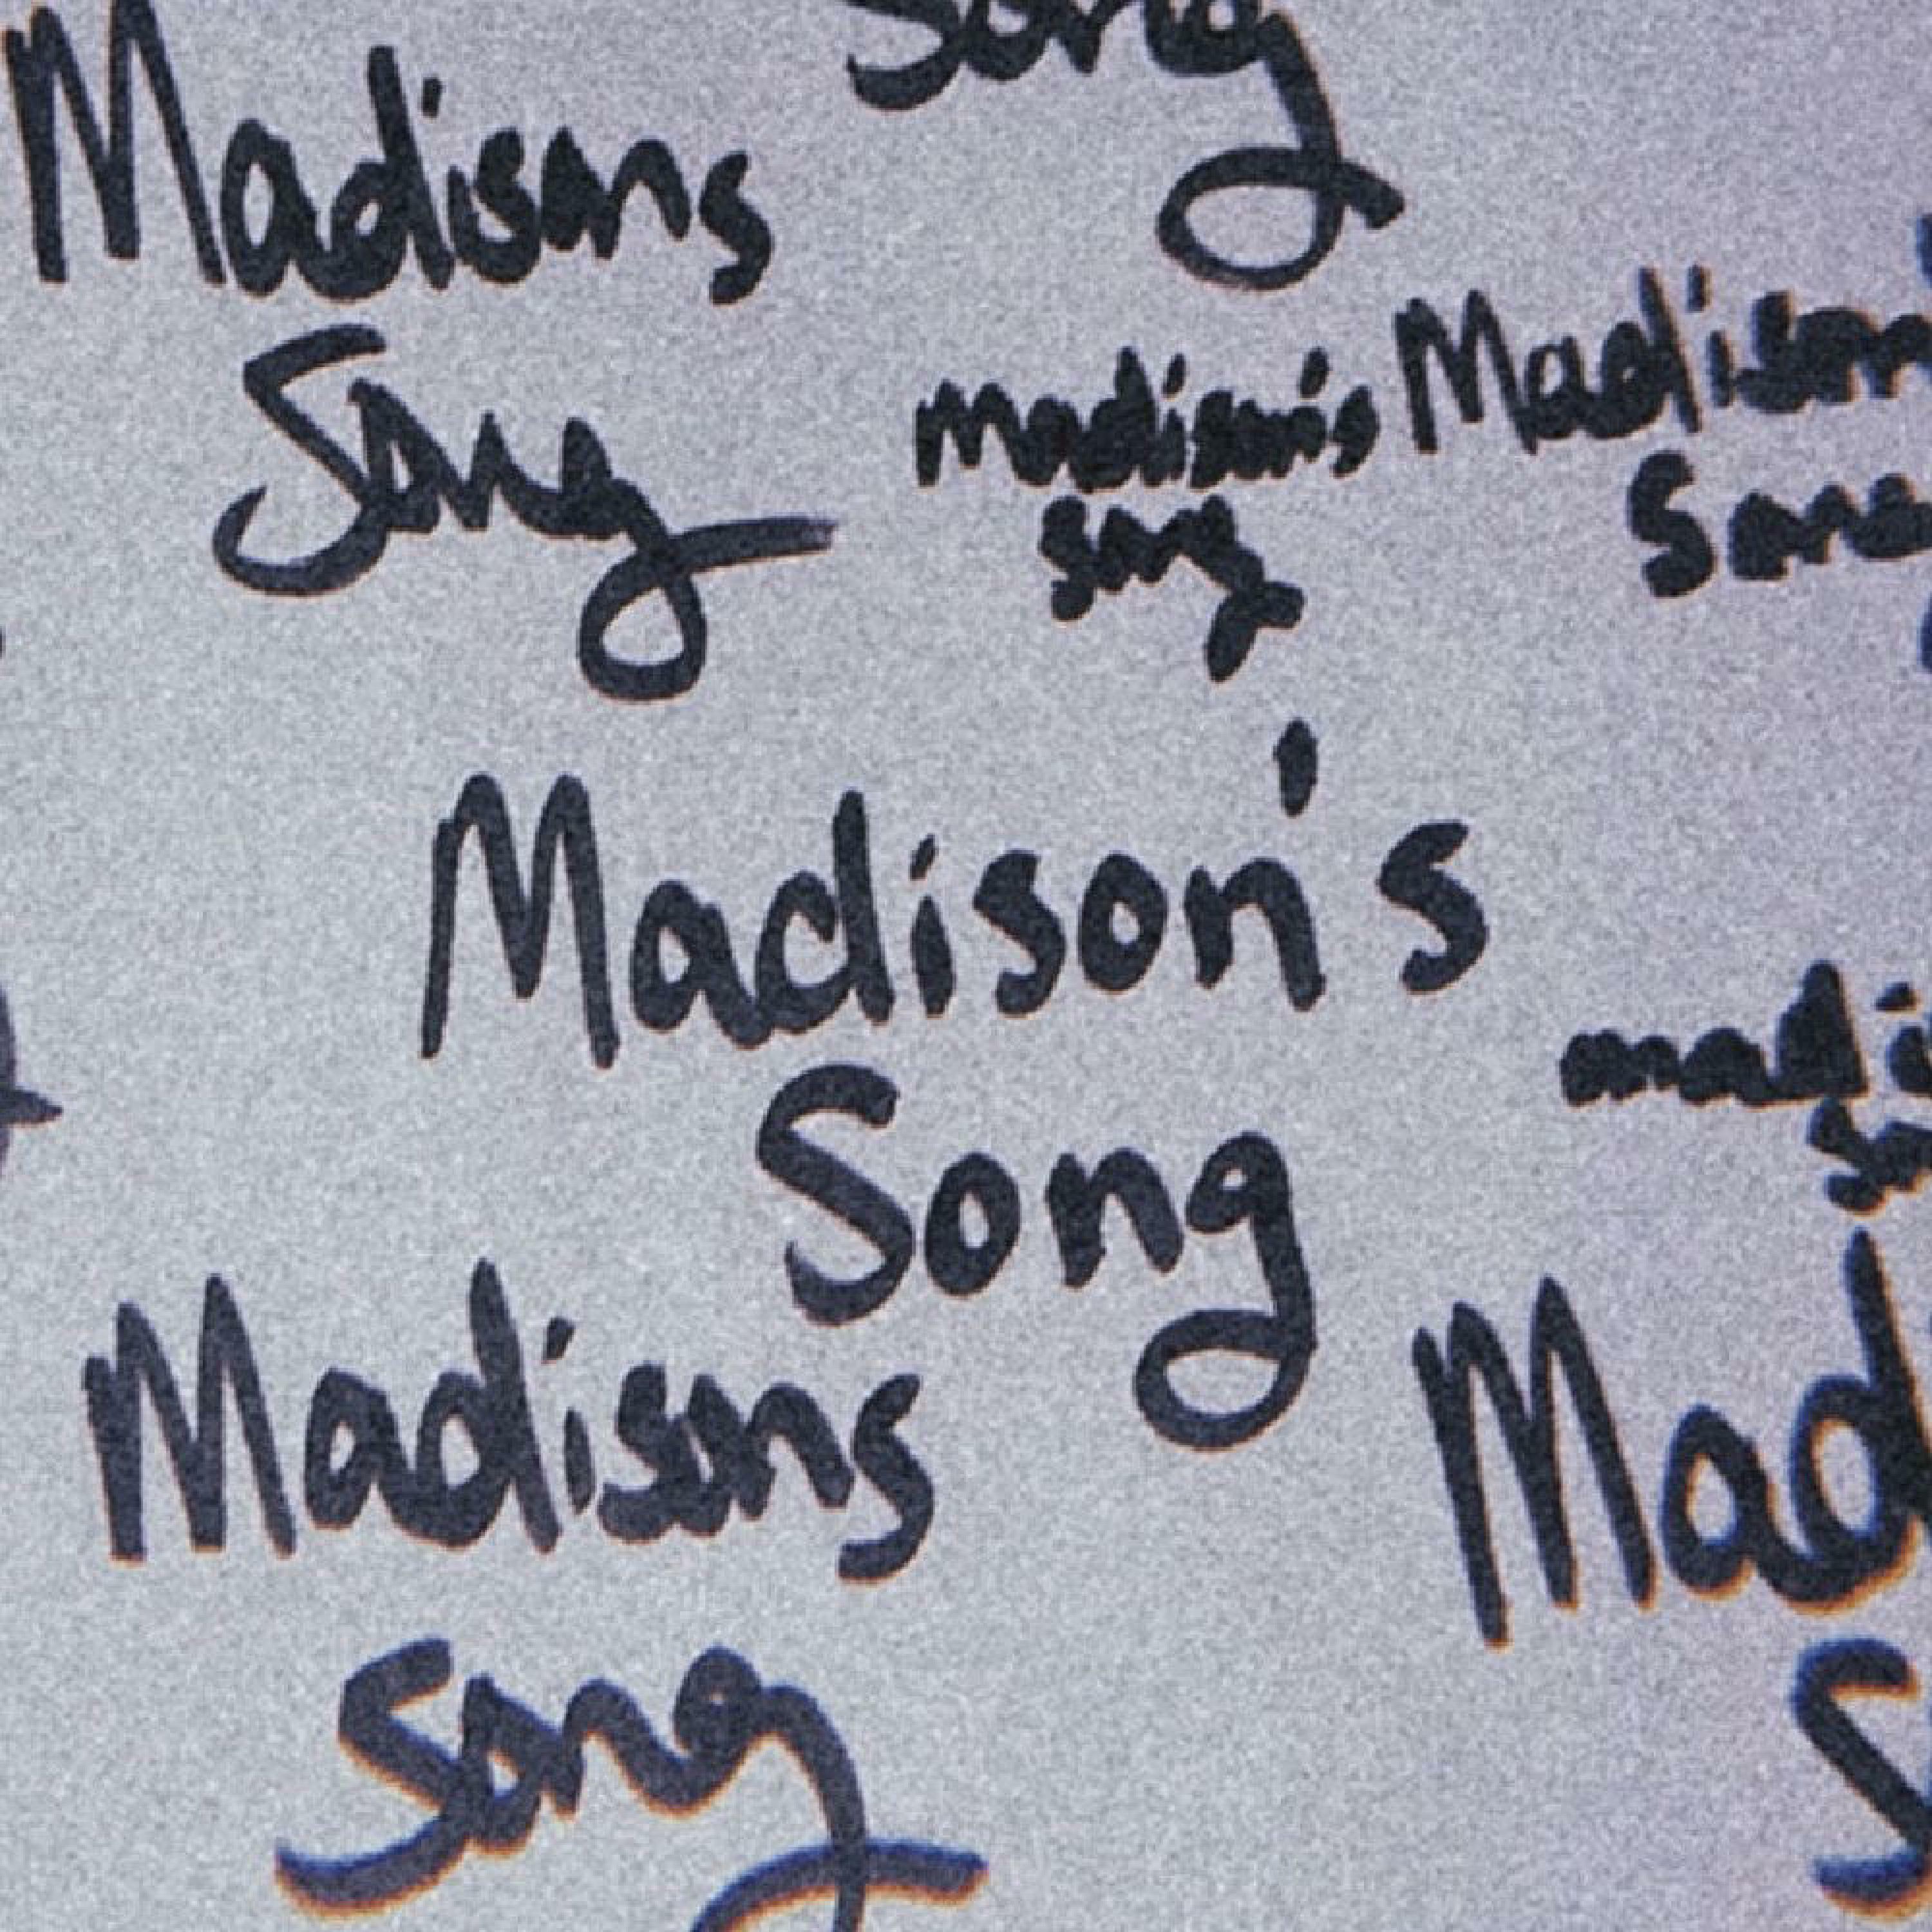 song
Madisons
Song
madison's
song
Madison
Song
Madison's
Song
madi
so
Madisons
Song
Mad
S